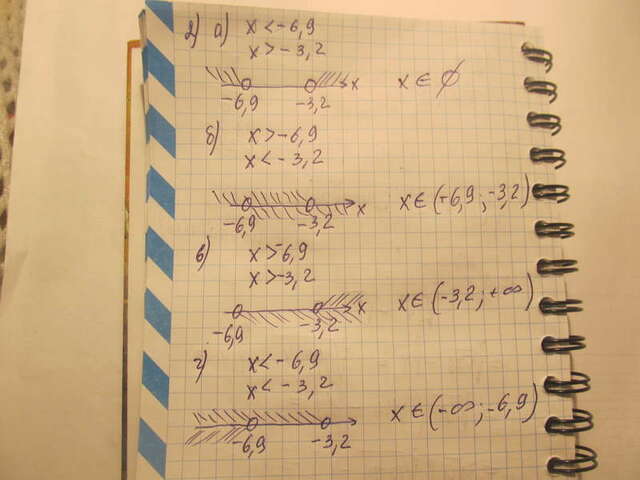 2) а) x < -6,9
x > -3,2
-6,9 -3,2 x x ∈ ∅
б) x > -6,9
x < -3,2
-6,9 -3,2 x x ∈ (-6,9 ; -3,2)
в) x > -6,9
x > -3,2
-6,9 -3,2 x x ∈ (-3,2 ; +∞)
г) x < -6,9
x < -3,2
-6,9 -3,2 x ∈ (-∞ ; -6,9)